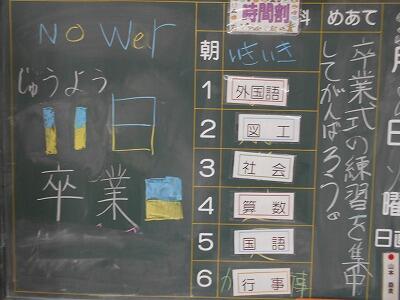 No Wer
じゅうよう
11日
卒業
時間割
科
めあて
朝 いきいき
1 外国語
2 図工
3 社会
4 算数
5 国語
6 行事
卒業式の練習を集中
してがんばろう。
月
日
曜
日直